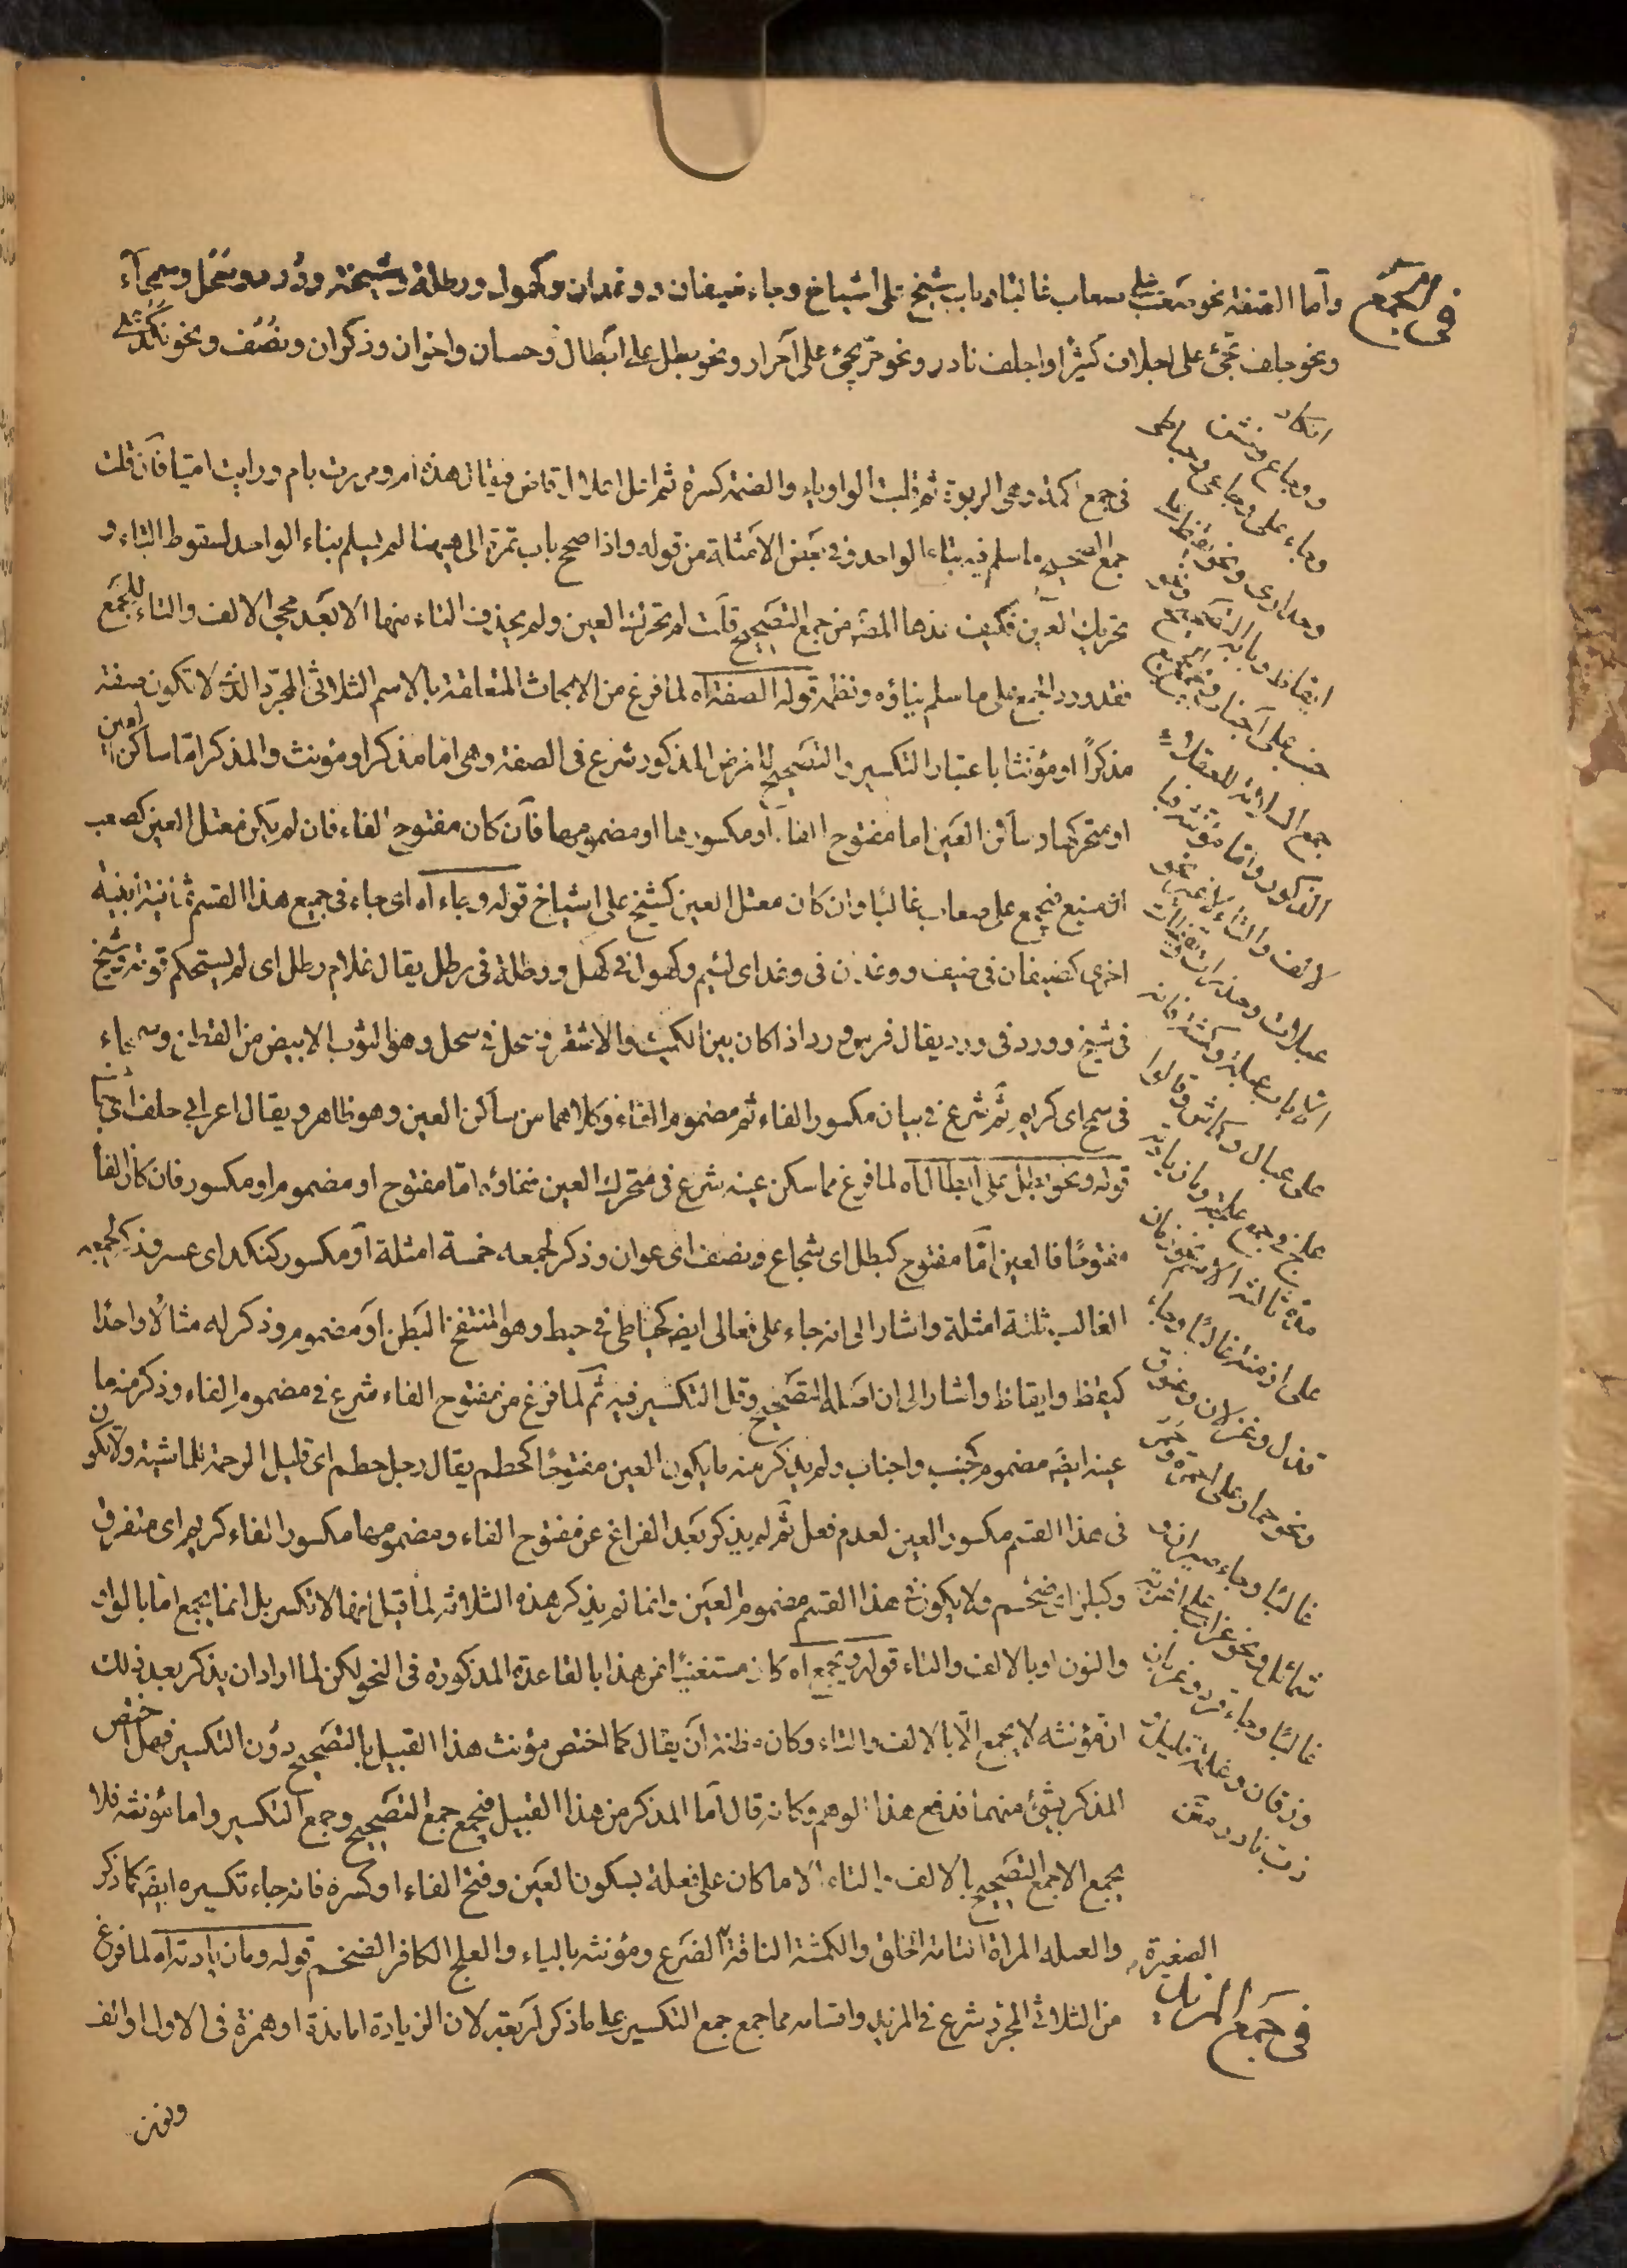 في الجمع
وأما الصفة نحو صعب على صعاب غالبا وباب شيخ على اشياخ وجاء ضيفان ووغدان وكهول ورطلة وشيخة وورد وسُحُل وسمحاء
ونحو جلف يجئ على اجلاف كثيرا واجلف نادر ونحو حرّ يجئ على احرار ونحو بطل على ابطال وحسان واخوان وذكران ونُصُف ونحو نكد على
انكاد
ووجاع وخشن
وجاء على وجاعى وحباطى
وحذارى ونحو يقظ على
ايقاظ وبابه التصحيح ونحو
جنب على اجناب ويجمع الجميع
جمع السلامة للعقلاء
الذكور واما مؤنثه فبا
لالف والتاء لا غير نحو
عبلات وحذرات ويقظات
الا باب عبلة وكمشة فانه
على عبال وكماش وقالوا
علج في جمع علجة وما زيادته
مدة ثالثة الاسم نحو زمان
على ازمنة غالبا وجاء
قذل وغزلان وعنوق
ونحو حمار على احمرة وحمر
غالبا وجاء صيران و
شمائل ونحو غراب على اغربة
غالبا وجاء قرد وغربان
وزقان وغلمة قليل و
ذب نادر
في جمع كمة وهى الربوة ثم قلبت الواو ياء والضمة كسرة ثم اعل اعلال قاض فيقال هذه ام ومررت بام ورايت اميا فان قلت
جمع الصحيح ما سلم فيه بناء الواحد وفي بعض الامثلة من قوله واذا صح باب تمرة الى ههنا لم يسلم بناء الواحد لسقوط التاء و
تحريك العين فكيف عدها المص من جمع التصحيح قلت لم يتحرك العين ولم يحذف التاء منها الا بعد مجئ الالف والتاء للجمع
فقد ورد الجمع على ما سلم بناؤه ونظمه قوله الصفة اه لما فرغ من الابحاث المتعلقة بالاسم الثلاثى المجرد الذى لا تكون صفة
مذكرًا او مؤنثا باعتبار التكسير والتصحيح للغرض المذكور شرع في الصفة وهى اما مذكر او مؤنث والمذكر امّا ساكن العين
او متحركها وساكن العين اما مفتوح الفاء او مكسورها او مضمومها فان كان مفتوح الفاء فان لم يكن معتل العين كصعب
اى منيع فيجمع على صعاب غالبًا وان كان معتل العين كشيخ على اشياخ قوله وجاء اه اى جاء في جميع هذا القسم ثمانية ابنية
اخرى كضيفان في ضيف ووغدان في وغد اى لئيم وكهول في كهل ورطلة في رطل يقال غلام رطل اى لم يستحكم قوته وشيخة
في شيخ وورد في ورد يقال فرس ورد اذا كان بين الكميت والاشقر وسحل في سحل وهو الثوب الابيض من القطن وسمحاء
في سمح اى كريم ثم شرع في بيان مكسور الفاء ثم مضموم الفاء وكلاهما من ساكن العين وهو ظاهر ويقال اعرابى جلف اى جاف
قوله ونحو بطل على ابطال اه لما فرغ مما سكن عينه شرع في متحرك العين ففاؤه امّا مفتوح او مضموم او مكسور فان كان الفاء
مفتوحًا فالعين امّا مفتوح كبطل اى شجاع ونصف اى عوان وذكر لجمعه خمسة امثلة او مكسور كنكد اى عسر وذكر لجمعه
الغالب ثلثة امثلة واشار الى انه جاء على فعالى ايضا كحباطى في حبط وهو المنتفخ البطن او مضموم وذكر له مثالًا واحدًا
كيقظ وايقاظ واشار الى ان اصله التصحيح وقل التكسير فيه ثم لما فرغ من مفتوح الفاء شرع في مضموم الفاء وذكر منه ما
عينه ايضا مضموم كجنب واجناب ولم يذكر منه ما يكون العين مفتوحًا كحطم يقال رجل حطم اى قليل الرحمة للماشية ولا يكون
في هذا القسم مكسور العين لعدم فعل ثم لم يذكر بعد الفراغ عن مفتوح الفاء ومضمومها مكسور الفاء كزيم اى متفرق
وكبلز اى ضخم ولا يكون في هذا القسم مضموم العين وانما لم يذكر هذه الثلاثة لما قيل انها لا تكسر بل انما يجمع اما بالواو
والنون او بالالف والتاء قوله ويجمع اه كان مستغنيًا عن هذا بالقاعدة المذكورة في النحو لكن لما اراد ان يذكر بعد ذلك
ان مؤنثه لا يجمع الّا بالالف والتاء وكان مظنة ان يقال كما اختص مؤنث هذا القبيل بالتصحيح دون التكسير فهل اختص
المذكر بشئ منهما فدفع هذا الوهم وكانه قال اما المذكر من هذا القبيل فيجمع جمع التصحيح وجمع التكسير واما مؤنثه فلا
يجمع الا جمع التصحيح بالالف والتاء الا ما كان على فعلة بسكون العين وفتح الفاء او كسره فانه جاء تكسيره ايضا كما ذكر
والعبله المراة التامة الخلق والكمشة الناقة الصغيرة الضرع ومؤنثه بالياء والعلج الكافر الضخم قوله وما زيادته اه لما فرغ
من الثلاثى المجرد شرع في المزيد واقسامه مما جمع جمع التكسير على ما ذكر اربعة لان الزيادة اما مدة او همزة في الاول او الف
في جمع المزيد
ونون